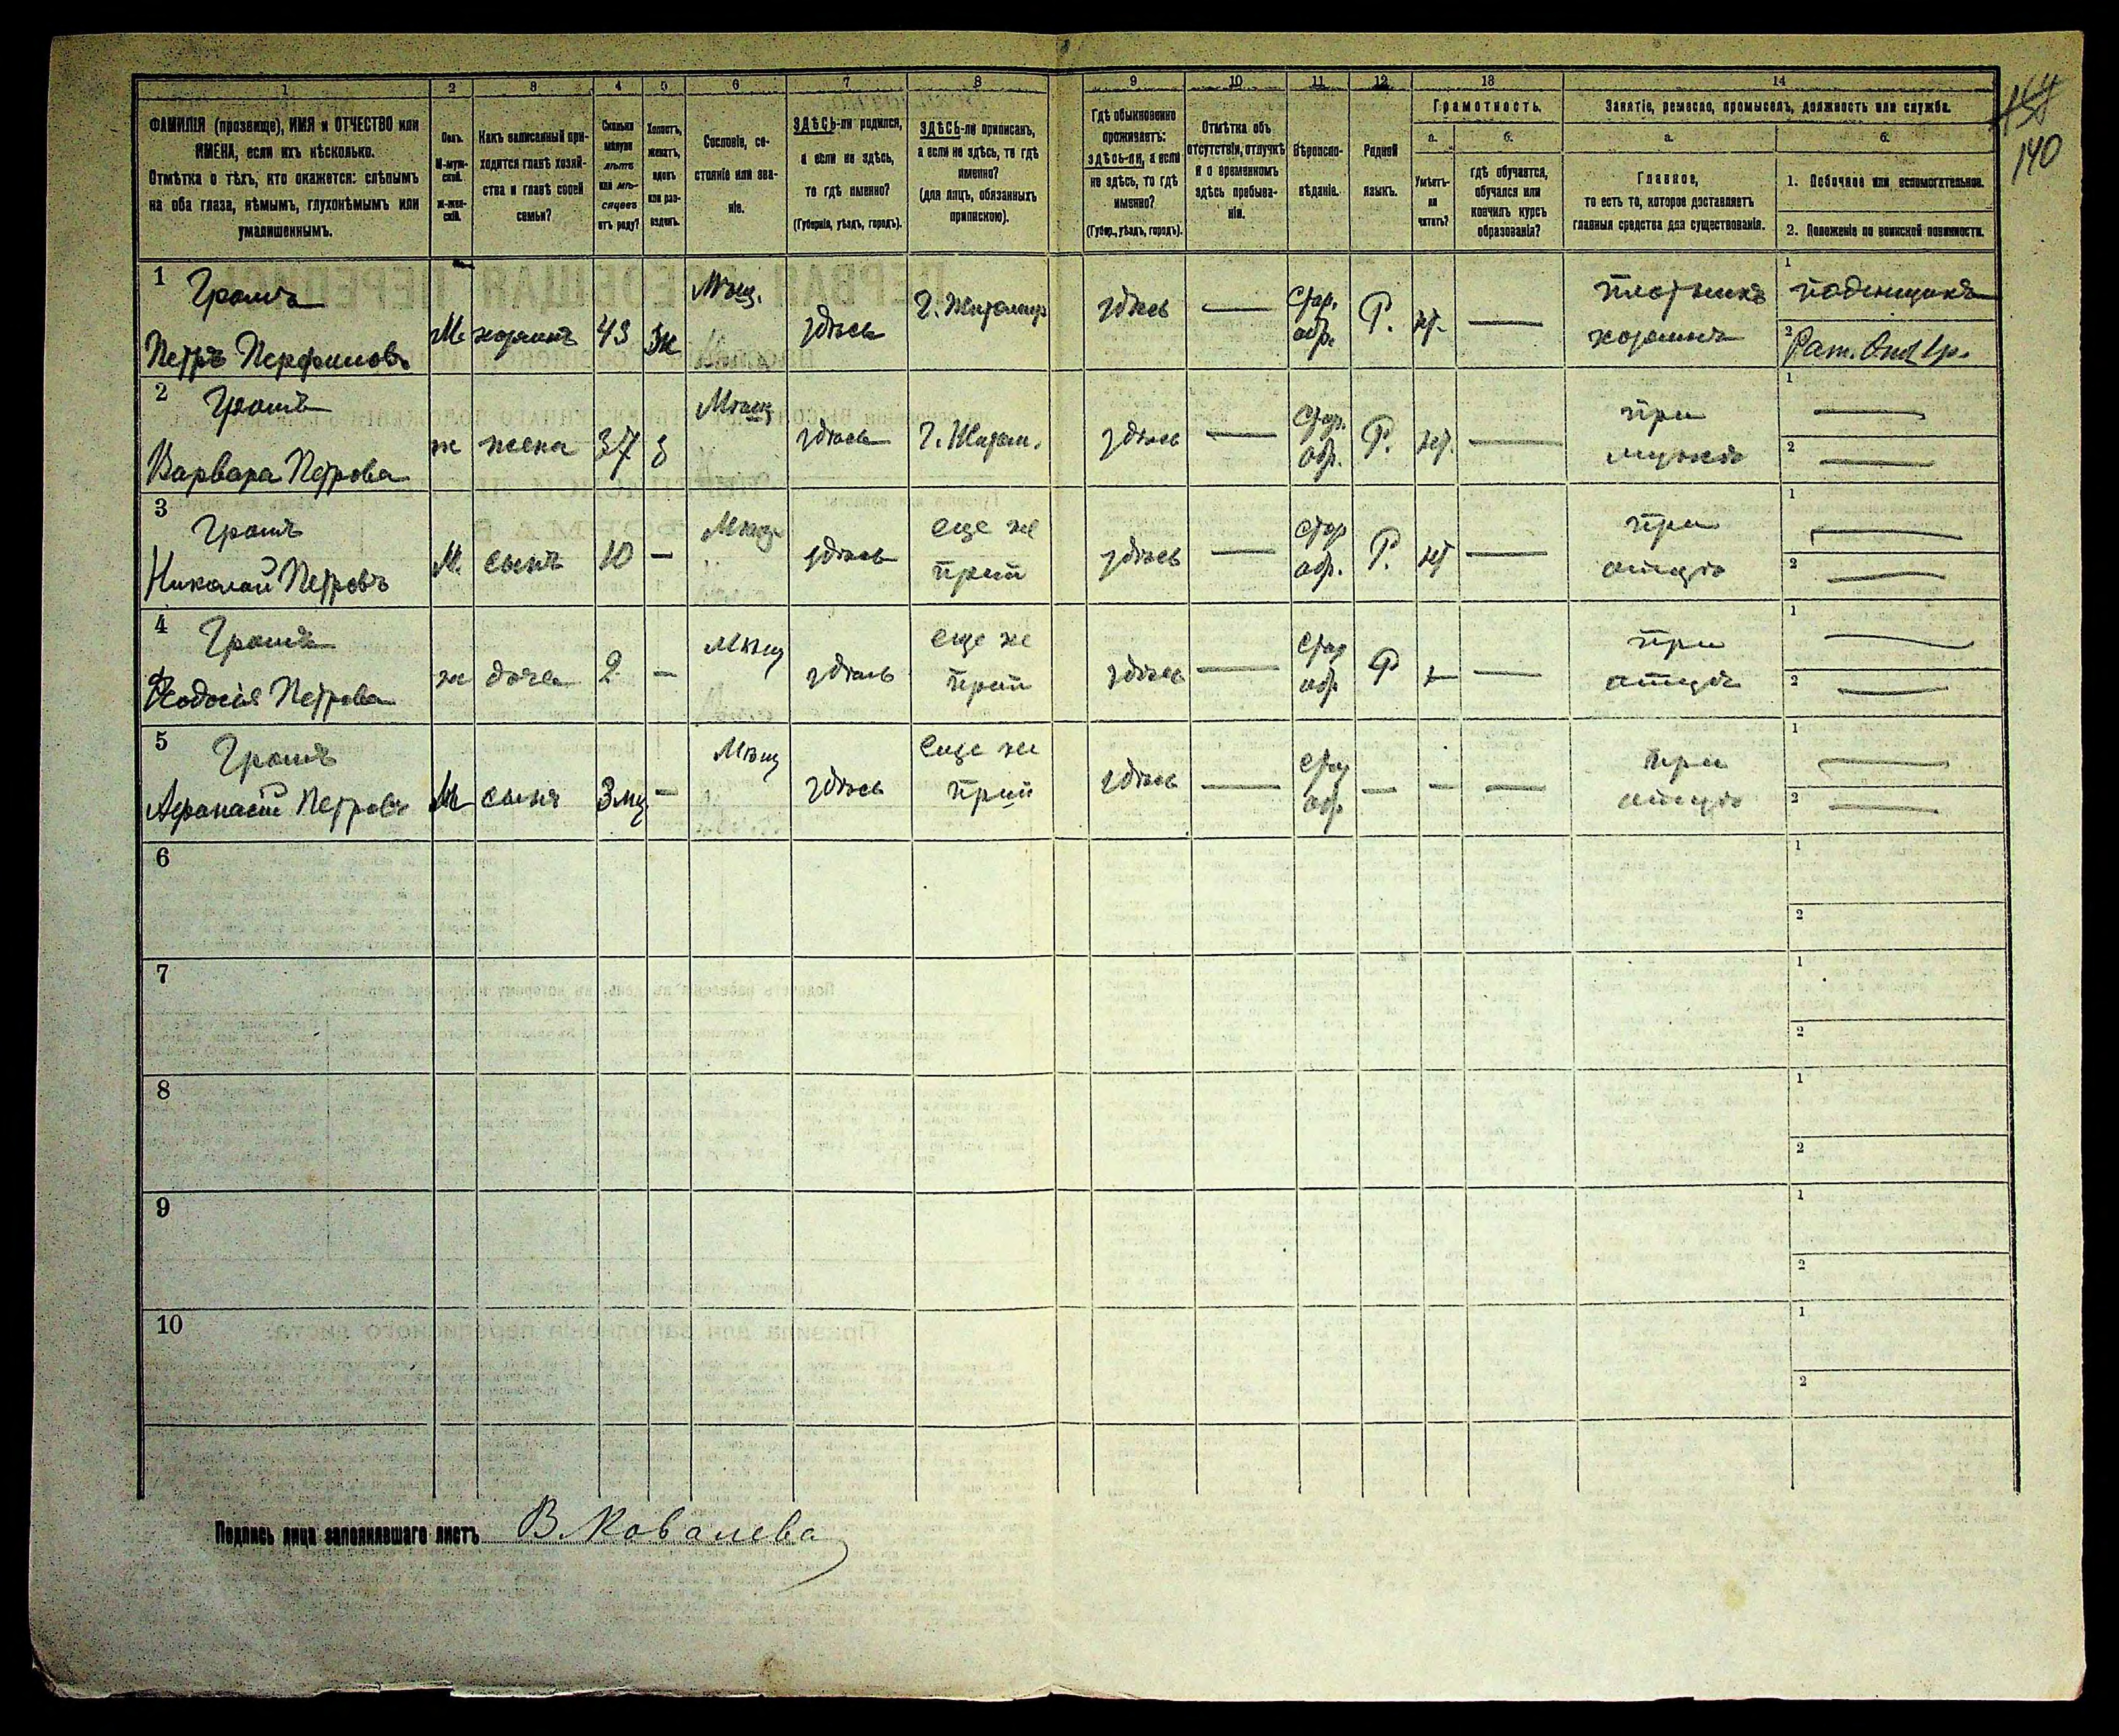 1 2 3 4 5 6 7 8 9 10 11 12 13 14
ФАМИЛІЯ (прозвище), ИМЯ и ОТЧЕСТВО или ИМЕНА, если ихъ нѣсколько.
Отмѣтка о тѣхъ, кто окажется: слѣпымъ на оба глаза, нѣмымъ, глухонѣмымъ или умалишеннымъ.
Полъ.
М-мужской.
Ж-женскій.
Какъ записанный приходится главѣ хозяйства и главѣ своей семьи?
Сколько минуло лѣтъ или мѣсяцевъ отъ роду?
Холостъ, женатъ, вдовъ или разведенъ.
Сословіе, состояніе или званіе.
ЗДѢСЬ-ли родился, а если не здѣсь, то гдѣ именно?
(Губернія, уѣздъ, городъ).
ЗДѢСЬ-ли приписанъ, а если не здѣсь, то гдѣ именно?
(для лицъ, обязанныхъ припискою).
Гдѣ обыкновенно проживаетъ: здѣсь-ли, а если не здѣсь, то гдѣ именно?
(Губер., уѣздъ, городъ).
Отмѣтка объ отсутствіи, отлучкѣ и о временномъ здѣсь пребываніи.
Вѣроисповѣданіе.
Родной языкъ.
Грамотность.
а.
Умѣетъ-ли читать?
б.
гдѣ обучается, обучался или кончилъ курсъ образованія?
Занятіе, ремесло, промыселъ, должность или служба.
а.
Главное,
то есть то, которое доставляетъ главныя средства для существованія.
б.
1. Побочное или вспомогательное.
2. Положеніе по воинской повинности.
140
1 Громъ
Петръ Перфиловъ
М. хозяинъ 43 Ж Мѣщ. здѣсь Г. Житомир здѣсь — Стар. обр. Р. нѣт. —
плотникъ
хозяинъ
1 поденщикъ
2
2 Громъ
Варвара Петрова
ж жена 37 з Мѣщ здѣсь Г. Житом. здѣсь — Стар. обр. Р. нѣт. —
при
мужѣ
1 —
2 —
3 Громъ
Николай Петровъ
М. сынъ 10 — Мѣщ здѣсь еще не прип здѣсь — Стар обр. Р. нѣт —
при
отцѣ
1 —
2 —
4 Громъ
Ѳеодосія Петрова
ж дочь 2 — Мѣщ здѣсь еще не прип здѣсь — Стар обр Р — —
при
отцѣ
1 —
2 —
5 Громъ
Афанасій Петровъ
М. сынъ 3 мц — Мѣщ здѣсь еще не прип здѣсь — Стар обр — — —
при
отцѣ
1 —
2 —
6
1
2
7
1
2
8
1
2
9
1
2
10
1
2
Подпись лица заполнявшаго листъ В. Ковалева